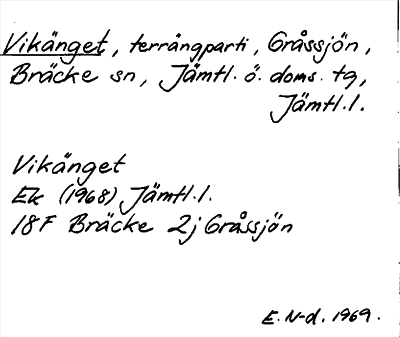 Vikänget, terrängparti, Gråssjön,
Bräcke sn, Jämtl. ö. doms. tg,
Jämtl. l.
Vikänget
Ek (1968) Jämtl. l.
18F Bräcke 2j Gråssjön
E. N-d. 1969.